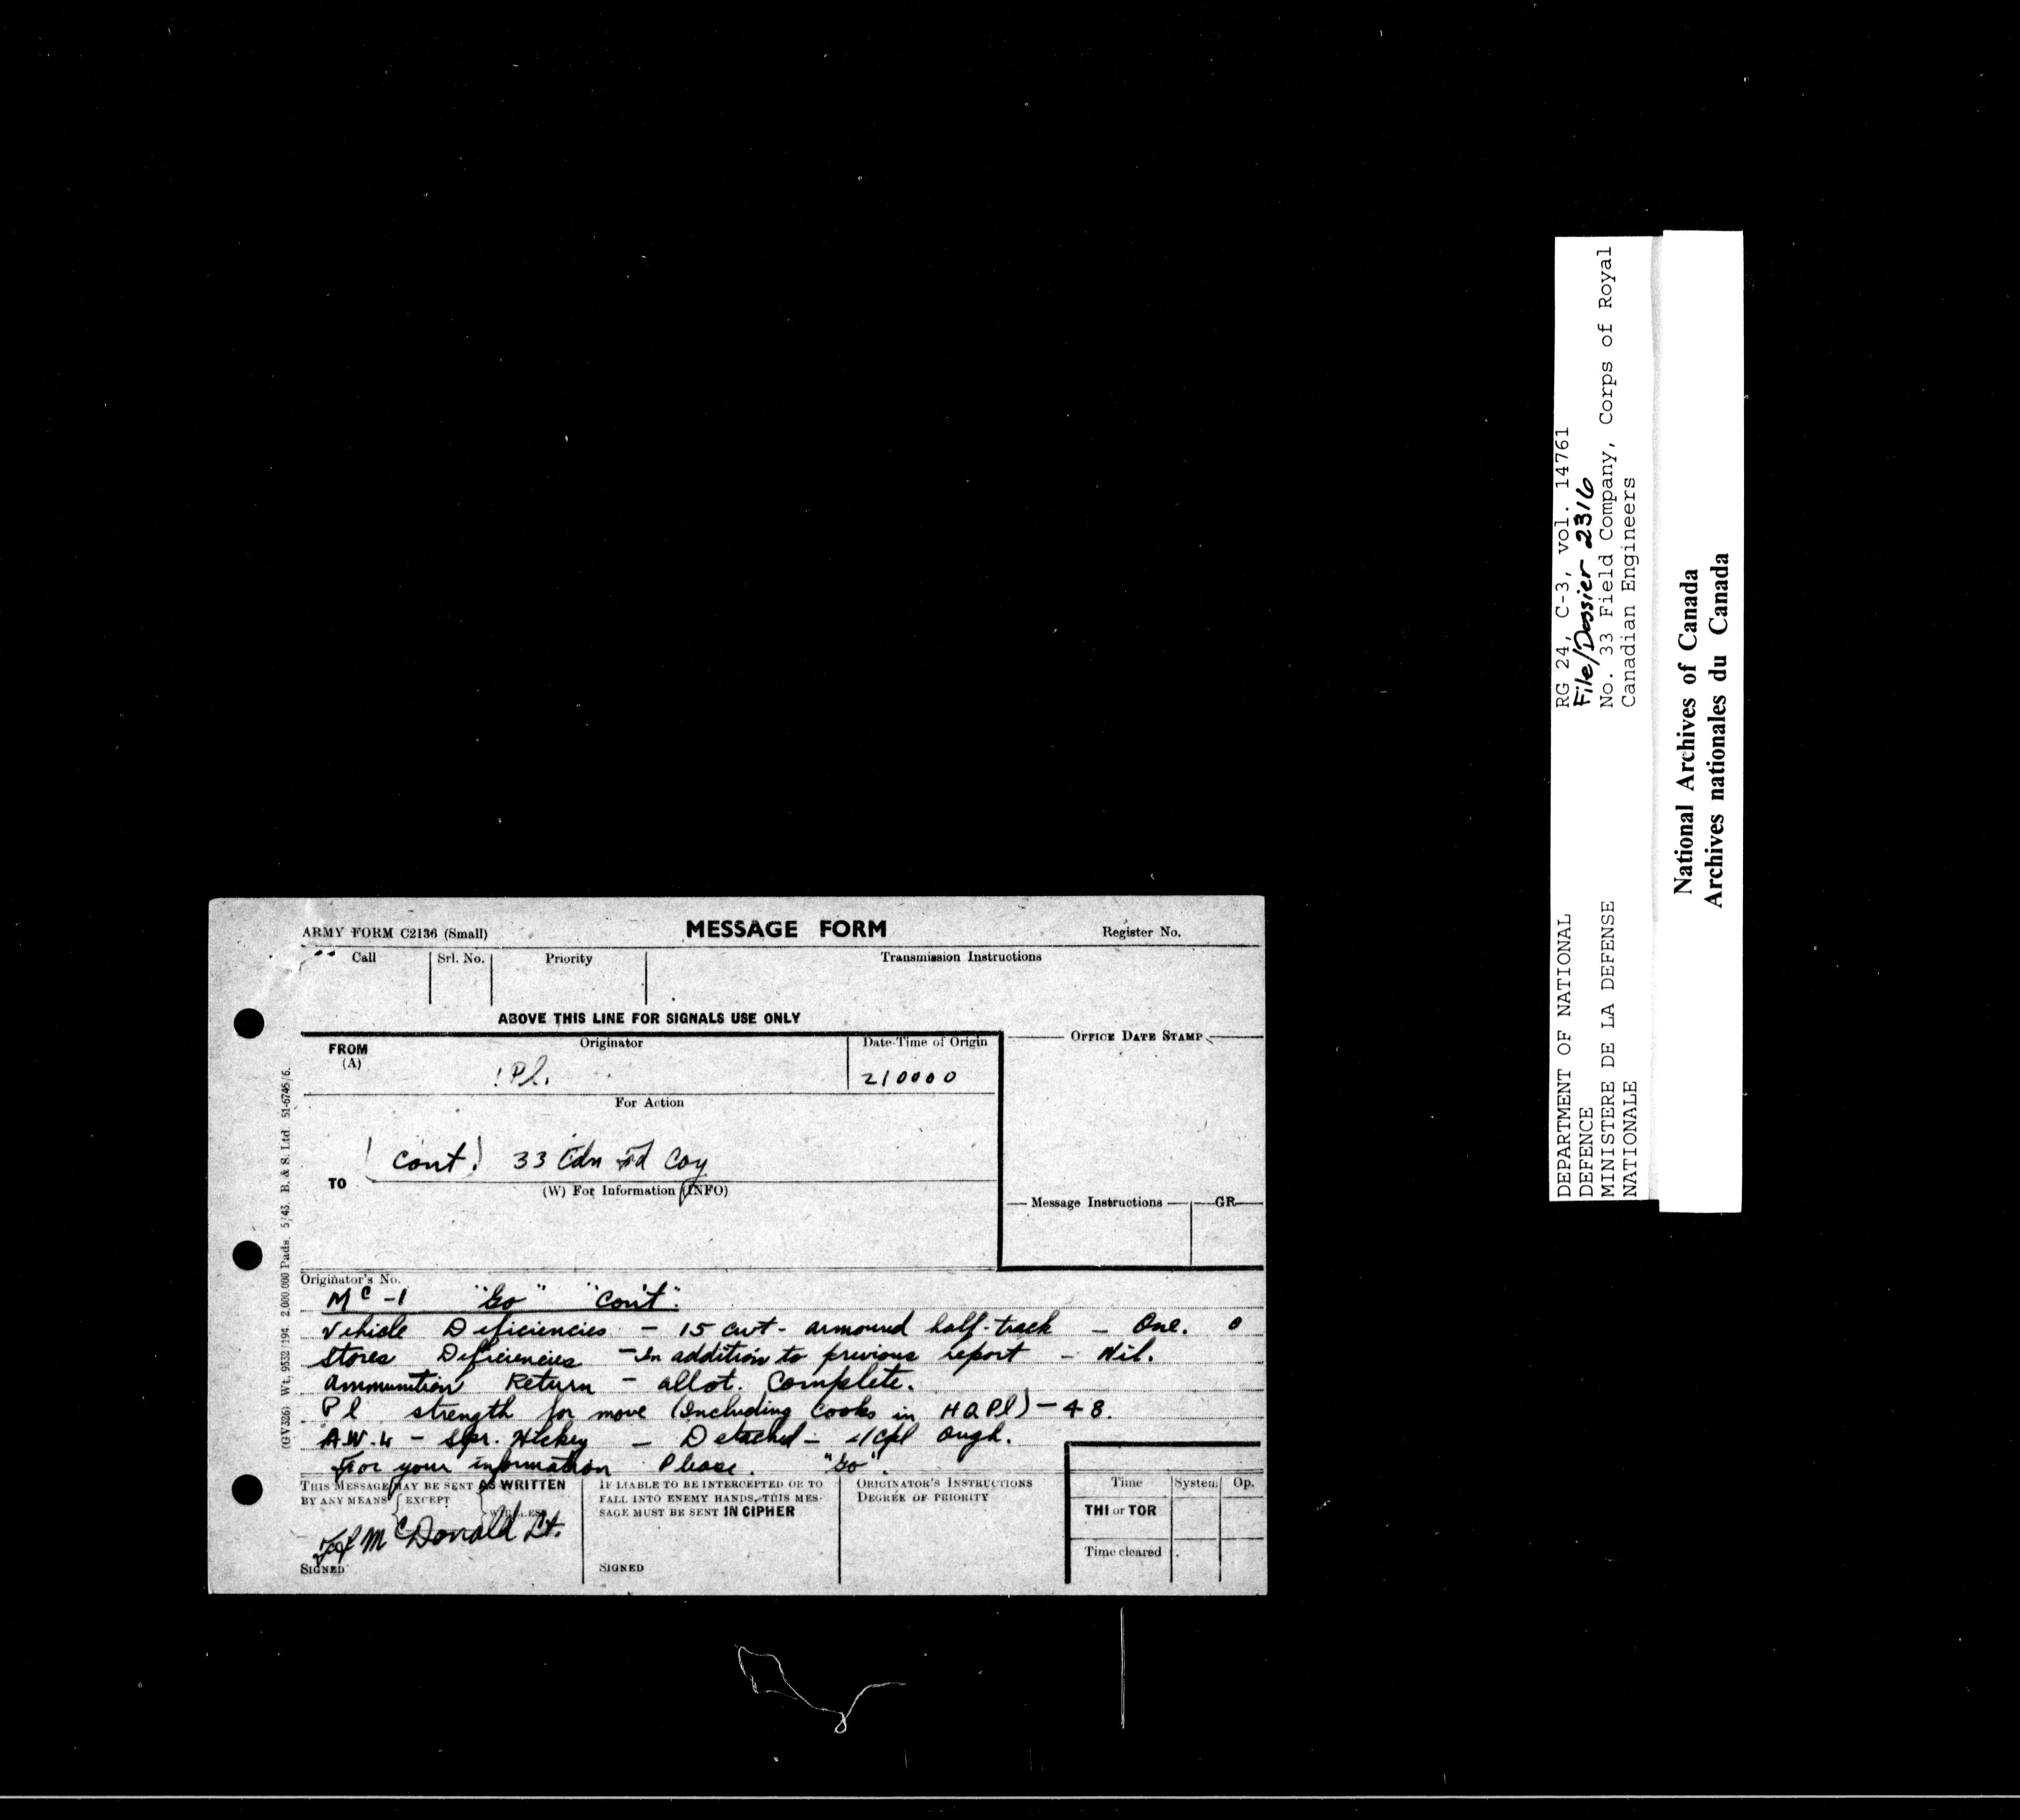 ARMY FORM C2136 (Small)
MESSAGE FORM
Register No.
Call
Srl. No.
Priority
Transmission Instructions
ABOVE THIS LINE FOR SIGNALS USE ONLY
FROM
(A)
Originator
1 Pl.
Date-Time of Origin
210000
OFFICE DATE STAMP
For Action
TO
(Cont.) 33 Cdn Fd Coy
(W) For Information (INFO)
Message Instructions
GR
Originator's No.
Mc-1 "Go" "Con't".
Vehicle Deficiencies - 15 cwt- armoured half-track - One.
Stores Deficiencies - In addition to previous report - Nil.
Ammunition Return - allot. Complete.
Pl strength for move (Including Cooks in HQ Pl) - 48.
A.W. - Spr. Hickey - Detached - Ough.
For your information Please. "Go".
THIS MESSAGE MAY BE SENT AS WRITTEN
BY ANY MEANS EXCEPT WIRELESS
McDonald Lt.
SIGNED
IF LIABLE TO BE INTERCEPTED OR TO
FALL INTO ENEMY HANDS, THIS MES-
SAGE MUST BE SENT IN CIPHER
SIGNED
ORIGINATOR'S INSTRUCTIONS
DEGREE OF PRIORITY
Time
System
Op.
THI or TOR
Time cleared
(GV326) Wt. 9532/194 2,000,000 Pads. 5/43. B. & S. Ltd. 51-6745/6.
DEPARTMENT OF NATIONAL
DEFENCE
MINISTERE DE LA DEFENSE
NATIONALE
RG 24, C-3, vol. 14761
File/Dossier 2316
No. 33 Field Company, Corps of Royal
Canadian Engineers
National Archives of Canada
Archives nationales du Canada